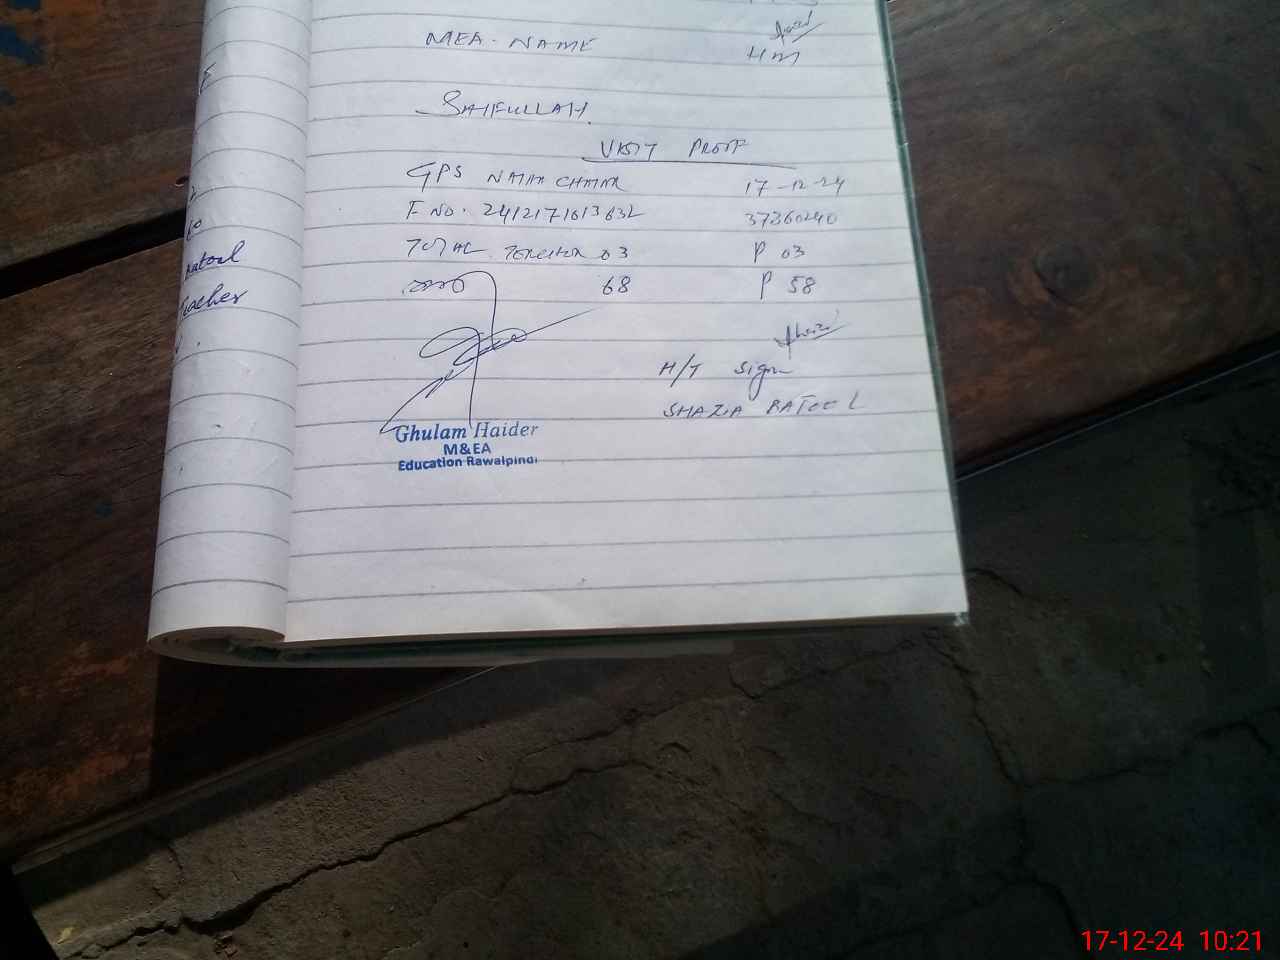 MEA - NAME
HM
SAIFULLAH.
VISIT PROOF
GPS 17-12-24
F NO. 2412171613632 37360240
TOTAL 03 P 03
68 P 58
H/T Sign
SHAZIA BATOOL
Ghulam Haider
M&EA
Education Rawalpindi
Batool
Teacher
17-12-24 10:21